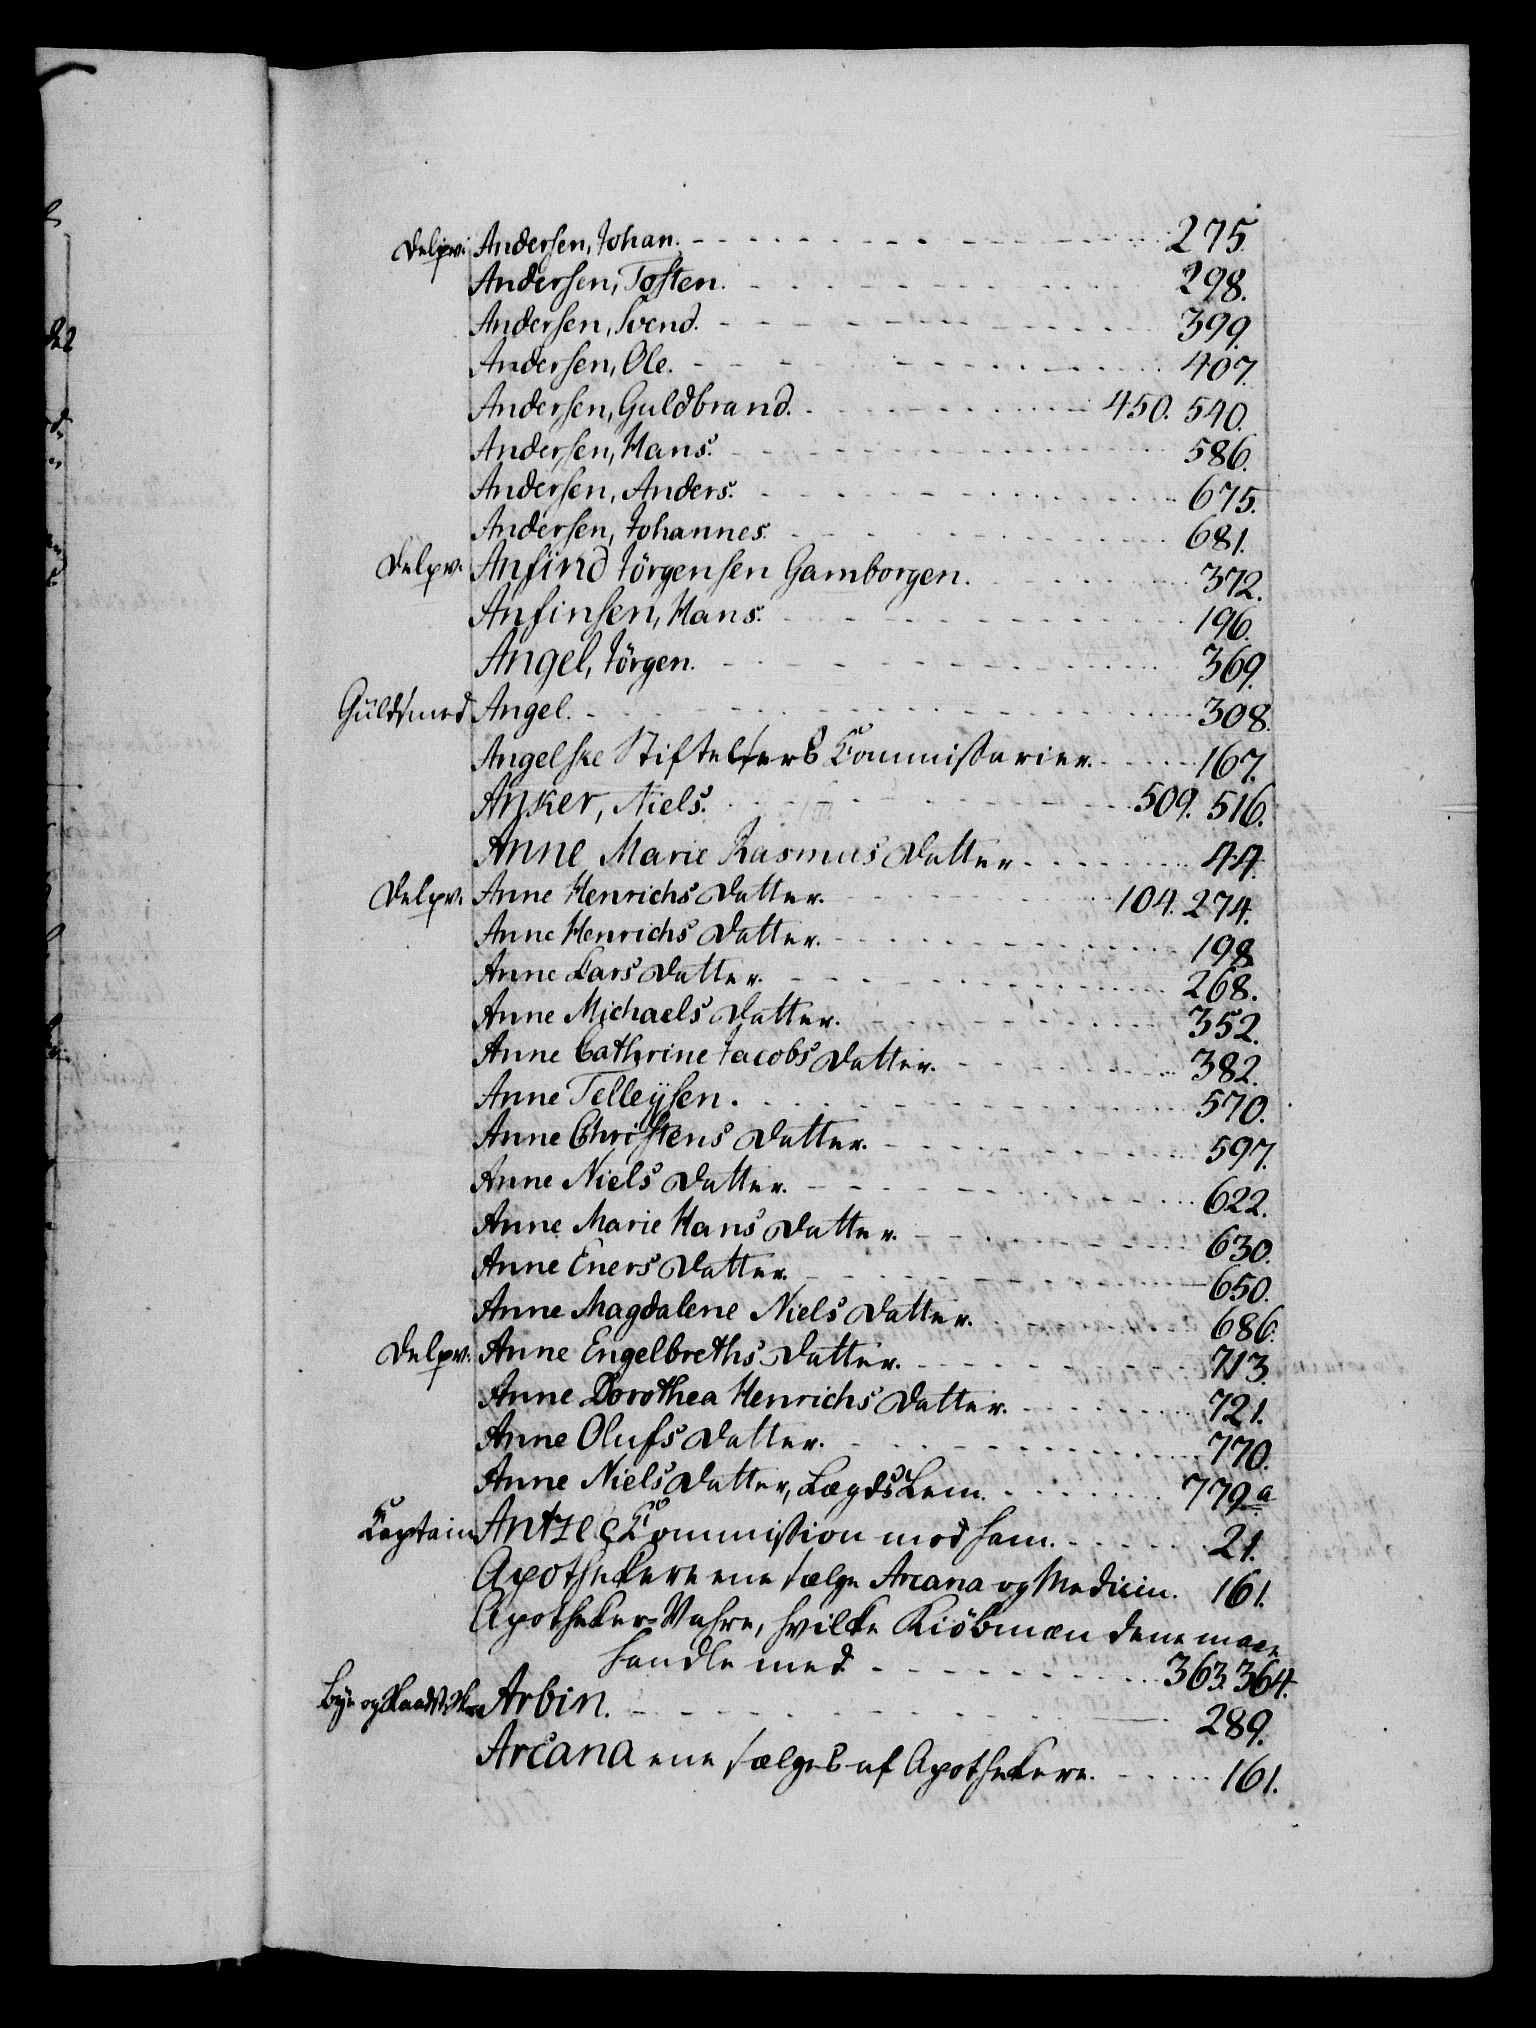 Delqv: Andersen, Johan. 275.
Andersen, Tosten. 298.
Andersen, Svend. 399.
Andersen, Ole. 407.
Andersen, Guldbrand. 450. 540.
Andersen, Hans. 586.
Andersen, Anders. 675.
Andersen, Johannes. 681.
Delqv. Anfind Jörgensen Gamborgen. 372.
Anfinsen, Hans. 196.
Angel, Jörgen. 369.
Guldsmed Angel. 308.
Angelske Stiftelsers Commissarier. 167.
Anker, Niels. 509. 516.
Anne Marie Rasmus Datter. 44.
Delqv. Anne Henrichs Datter. 104. 274.
Anne Henrichs Datter. 198.
Anne Lars Datter. 268.
Anne Michaels Datter. 352.
Anne Cathrine Jacobs Datter. 382.
Anne Telleysen. 570.
Anne Christens Datter. 597.
Anne Niels Datter. 622.
Anne Marie Hans Datter. 630.
Anne Eners Datter. 650.
Anne Magdalene Niels Datter. 686.
Delqv. Anne Engelbreths Datter. 713.
Anne Dorothea Henrichs Datter. 721.
Anne Olufs Datter. 770.
Anne Niels Datter, Lægds Lem. 779.a
Captain Antzeé Commission mod ham. 21.
Apothekere ene sælge Arcana og Medicin. 161.
Apotheker-Vahre, hvilke Kiöbmæn dermed maae
handle med. 363. 364.
Bye og Raadst. Arbin. 289.
Arcana ene sælges af Apothekere. 161.